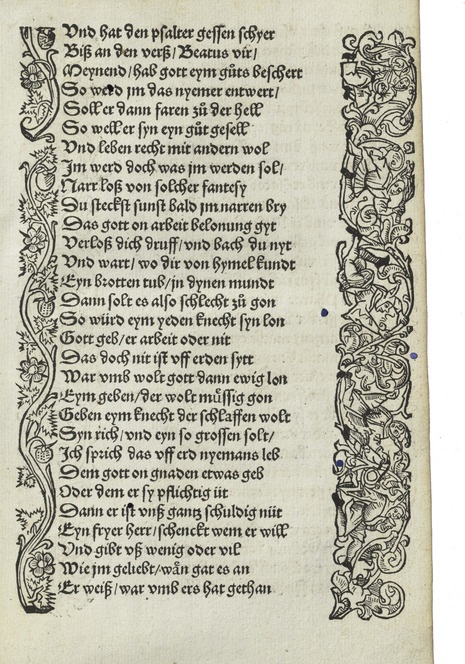 Vnd hat den psalter gessen schyer
Biß an den verß/Beatus vir/
Meynend/hab gott eym gůts beschert
So werd jm das nyemer entwert/
Soll er dann faren zů der hell
So well er syn eyn gůt gesell
Vnd leben recht mit andern wol
Jm werd doch was jm werden sol/
Narr loß von solcher fantesy
Du steckst sunst bald jm narren bry
Das gott on arbeit belonung gyt
Verloß dich druff/vnd bach du nyt
Vnd wart/wo dir von hymel kundt
Eyn brotten tub/in dynen mundt
Dann solt es also schlecht zů gon
So würd eym yeden knecht syn lon
Gott geb/er arbeit oder nit
Das doch nit ist vff erden sytt
War vmb wolt gott dann ewig lon
Eym geben/der wolt müssig gon
Geben eym knecht der schlaffen wolt
Syn rich/vnd eyn so grossen solt/
Jch sprich das vff erd nyemans leb
Dem gott on gnaden etwas geb
Oder dem er sy pflichtig üt
Dann er ist vnß gantz schuldig nüt
Eyn fryer herr/schenckt wem er will
Vnd gibt vß wenig oder vil
Wie jm geliebt/wån gat es an
Er weiß/war vmb ers hat gethan